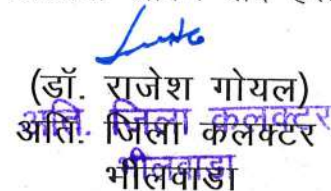 (डॉ. राजेश गोयल)
अति. जिला कलक्टर
अति. जिला कलक्टर
भीलवाडा
भीलवाडा